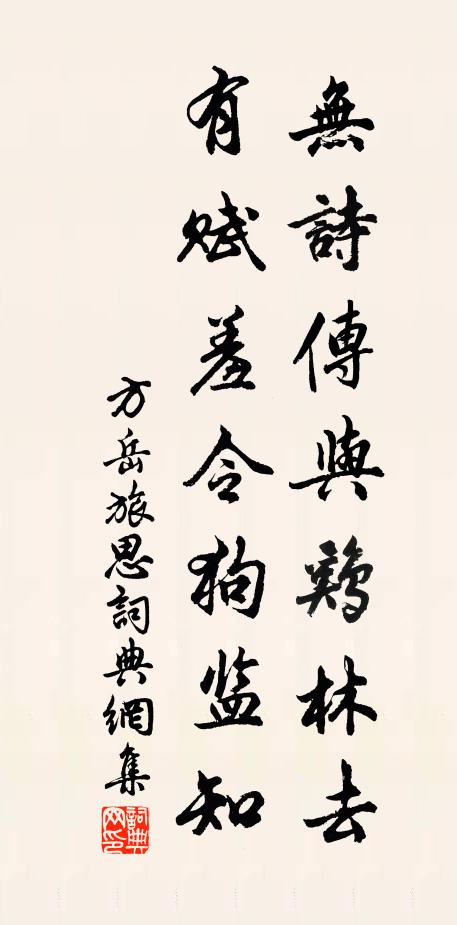 無詩傳與鷄林去
有賦羞令狗监知
方岳旅思詞典網集
詞典网印